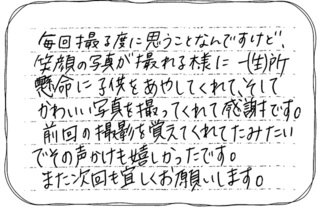 毎回撮る度に思うことなんですけど、
笑顔の写真が撮れる様に一生所
懸命に子供をあやしてくれて、そして
かわいい写真を撮ってくれて感謝です。
前回の撮影を覚えてくれてたみたい
でその声かけも嬉しかったです。
また次回も宜しくお願いします。